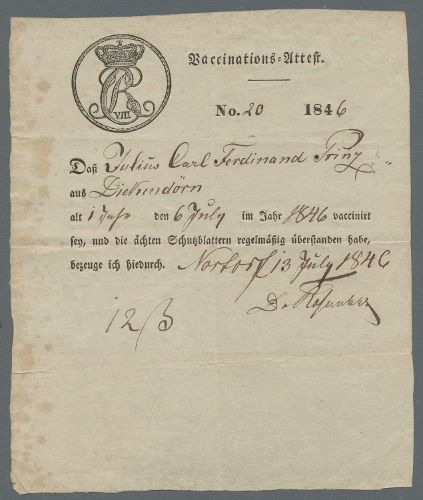 VIII
Vaccinations-Attest.
No. 20 1846
Daß Julius Carl Ferdinand Prinz
aus Dickendörn
alt 1 Jahr den 6 July im Jahr 1846 vaccinirt
sey, und die ächten Schutzblattern regelmäßig überstanden habe,
bezeuge ich hiedurch. Nortorf 13 July 1846
Dr
12 ß